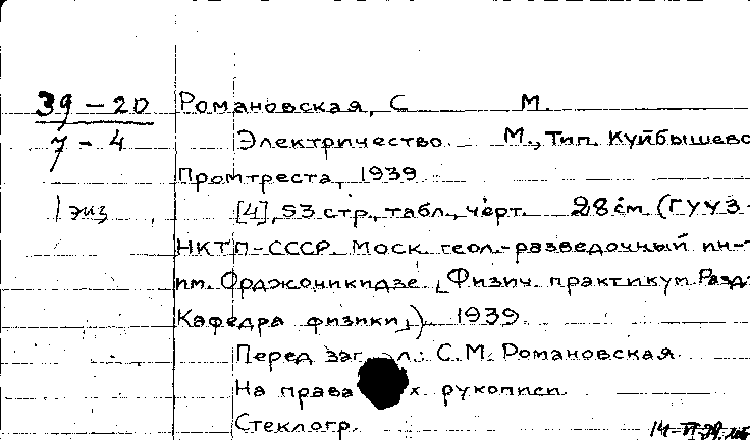 39-20 Романовская, С М.
7-4 Электричество. М., Тип. Куйбышевс
Промтреста, 1939
1 экз [4], 53 стр., табл., черт. 28 см (ГУУЗ
НКТП-СССР. Моск. геол.-разведочный ин-т
им. Орджоникидзе, Физич. практикум. Разд.
Кафедра физики,) 1939.
Перед заг. : С.М. Романовская.
На права х рукописи.
Стеклогр.